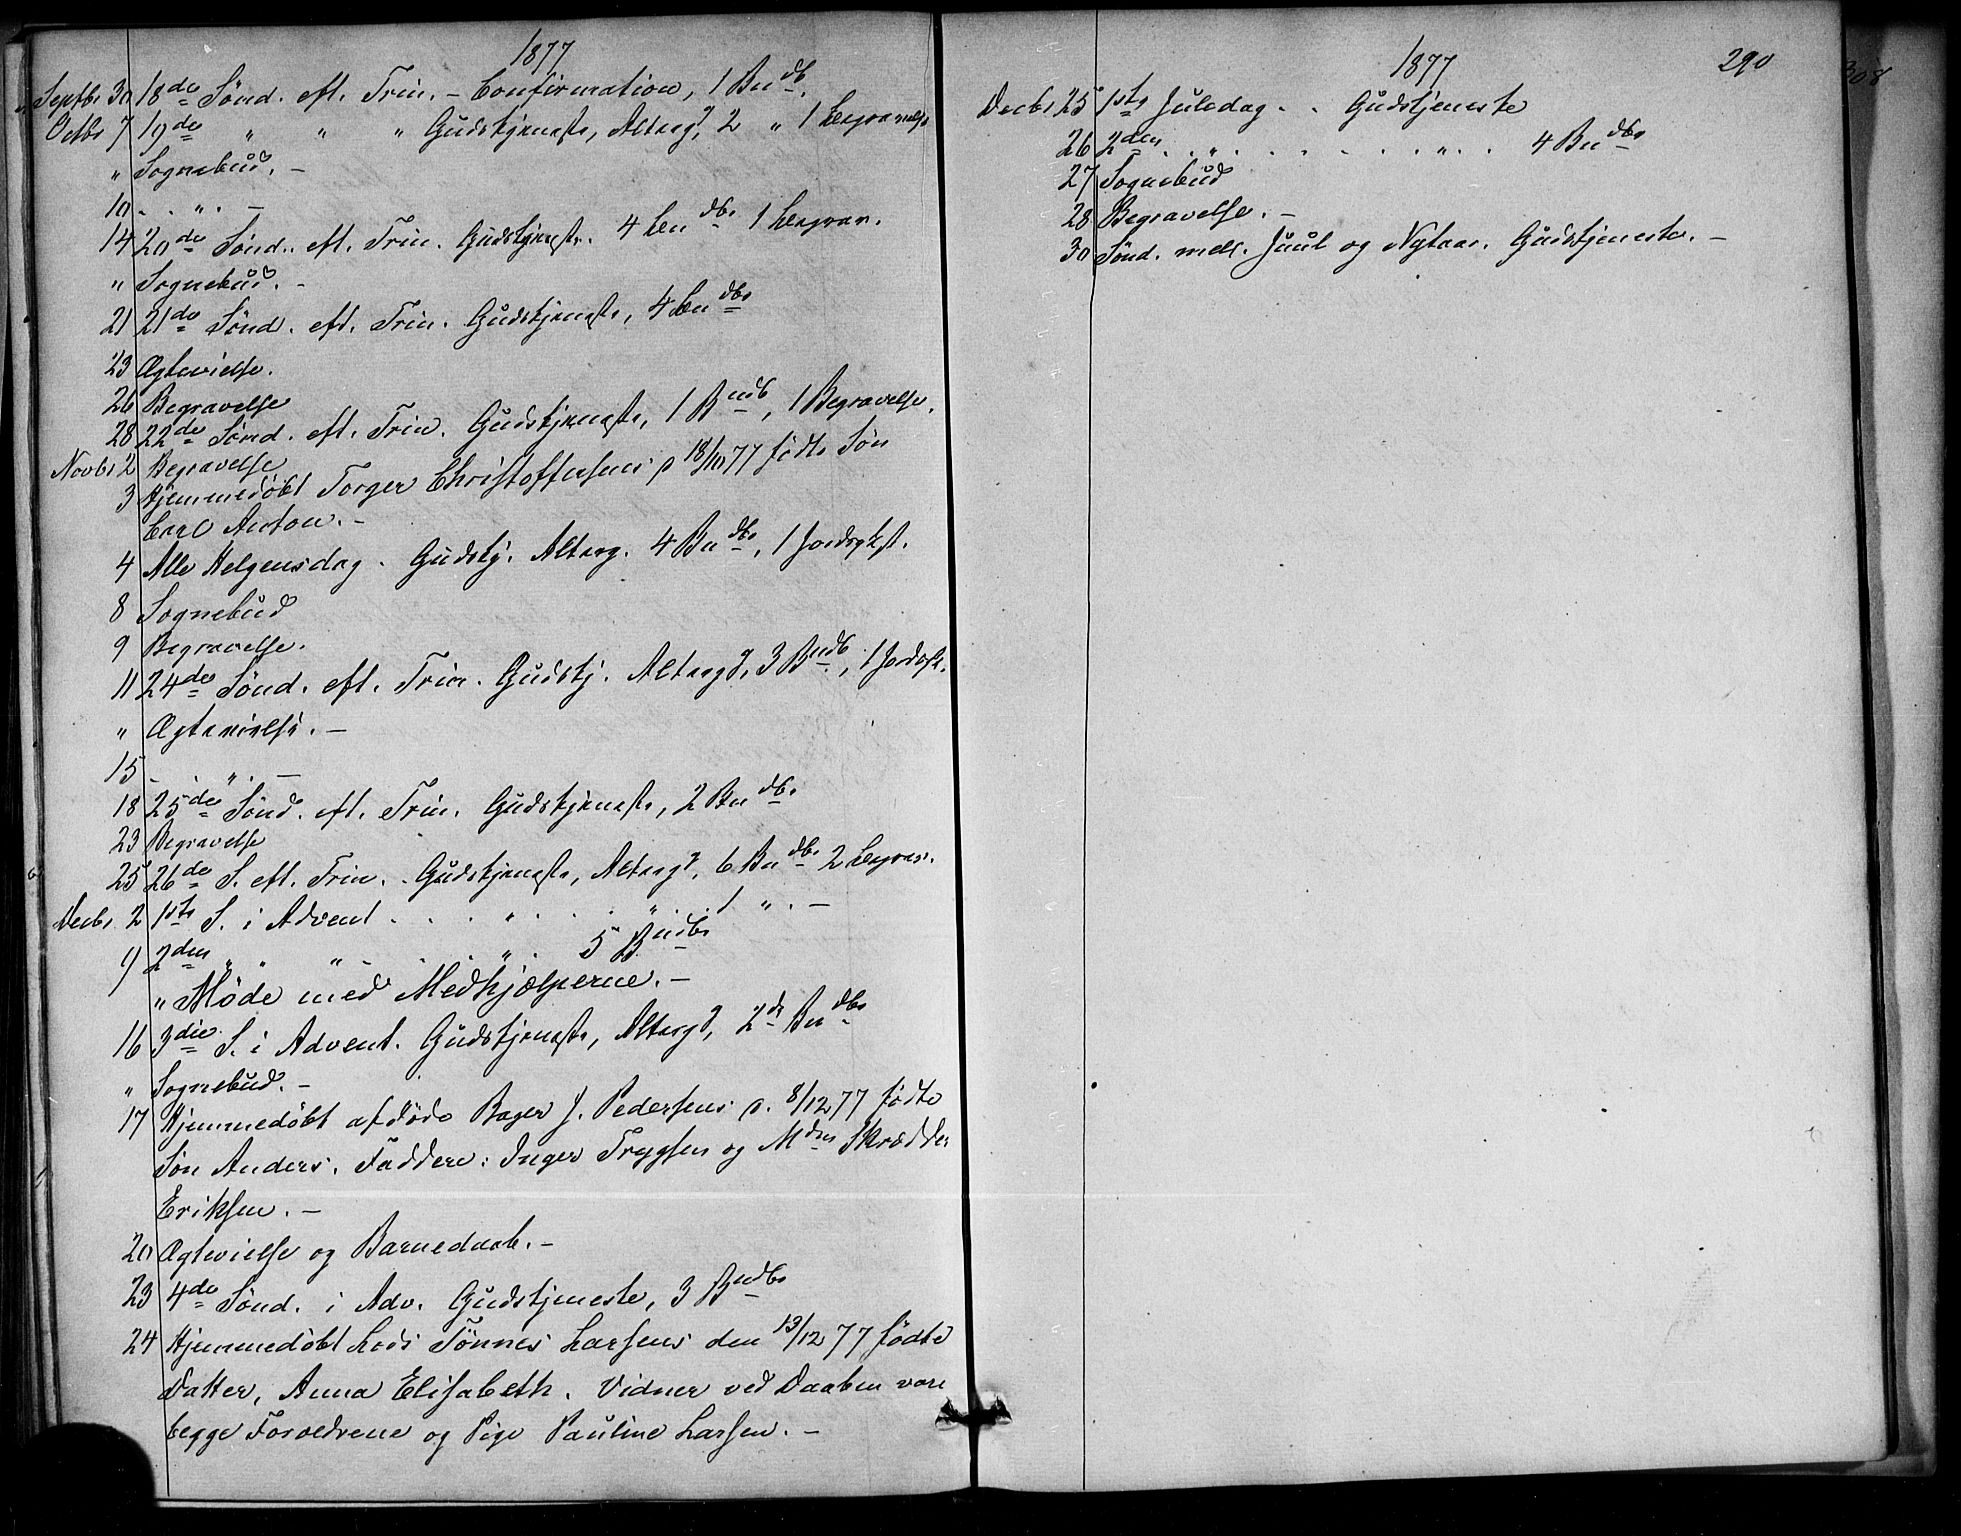 1877
Septbr 30 18de Sønd. eft. Trin. – Confirmation, 1 Bndb.
Octbr 7 19de " " " Gudstjeneste, Altergd, 2 " 1 begravelse
" Sognebud. –
10 . . " . –
14 20de Sønd. eft. Trin. Gudstjeneste. 4 bndbr 1 begrav.
" Sognebud. –
21 21de Sønd. eft. Trin. Gudstjeneste, 4 bndbr
23 Ægtevielse.
26 Begravelse
28 22de Sønd. eft. Trin. Gudstjeneste, 1 Bndb, 1 Begravelse.
Novbr 2 Begravelse
3 Hjemmedøbt Torger Christoffersens p 18/10 77 fødte Søn
Carl Anton. –
4 Alle Helgensdag. Gudstj. Alterg. 4 Bndbr, 1 Jordsfst.
8 Sognebud
9 Begravelse.
11 24de Sønd. eft. Trin. Gudstj. Altergd, 3 Bndb, 1 Jordsfst.
" Ægtevielse. –
15 . . " . –
18 25de Sønd. eft. Trin. Gudstjeneste, 2 Bndbr
23 Begravelse
25 26de S. eft. Trin. Gudstjeneste, Altergd, 6 Bndbr 2 begrav.
Decbr 2 1ste S. i Advent . . . " . . . " . . 1 " . –
9 2den " " " . . . " . 5 Bndbr
" Møde med Medhjælperne. –
16 3die S. i Advent. Gudstjeneste, Altergd, 2de Bndbr
" Sognebud. –
17 Hjemmedøbt afdøde Bager J. Pedersens p. 8/12 77 fødte
Søn Anders. Faddere: Inger Trygsen og Mdm Skrædder
Eriksen. –
20 Ægtevielse og Barnedaab. –
23 4de Sønd. i Adv. Gudstjeneste, 3 Bndbr
24 Hjemmedøbt Lods Tønnes Larsens den 13/12 77 fødte
Datter, Anna Elisabeth. Vidner ved Daaben vare
begge Forældrene og Pige Pauline Larsen. –
1877 290
308
Decbr 25 1ste Juledag . . Gudstjeneste
26 2den . . " . . . . . . " . . 4 Bndbr
27 Sognebud
28 Begravelse. –
30 Sønd. mell. Juul og Nytaar. Gudstjeneste. –